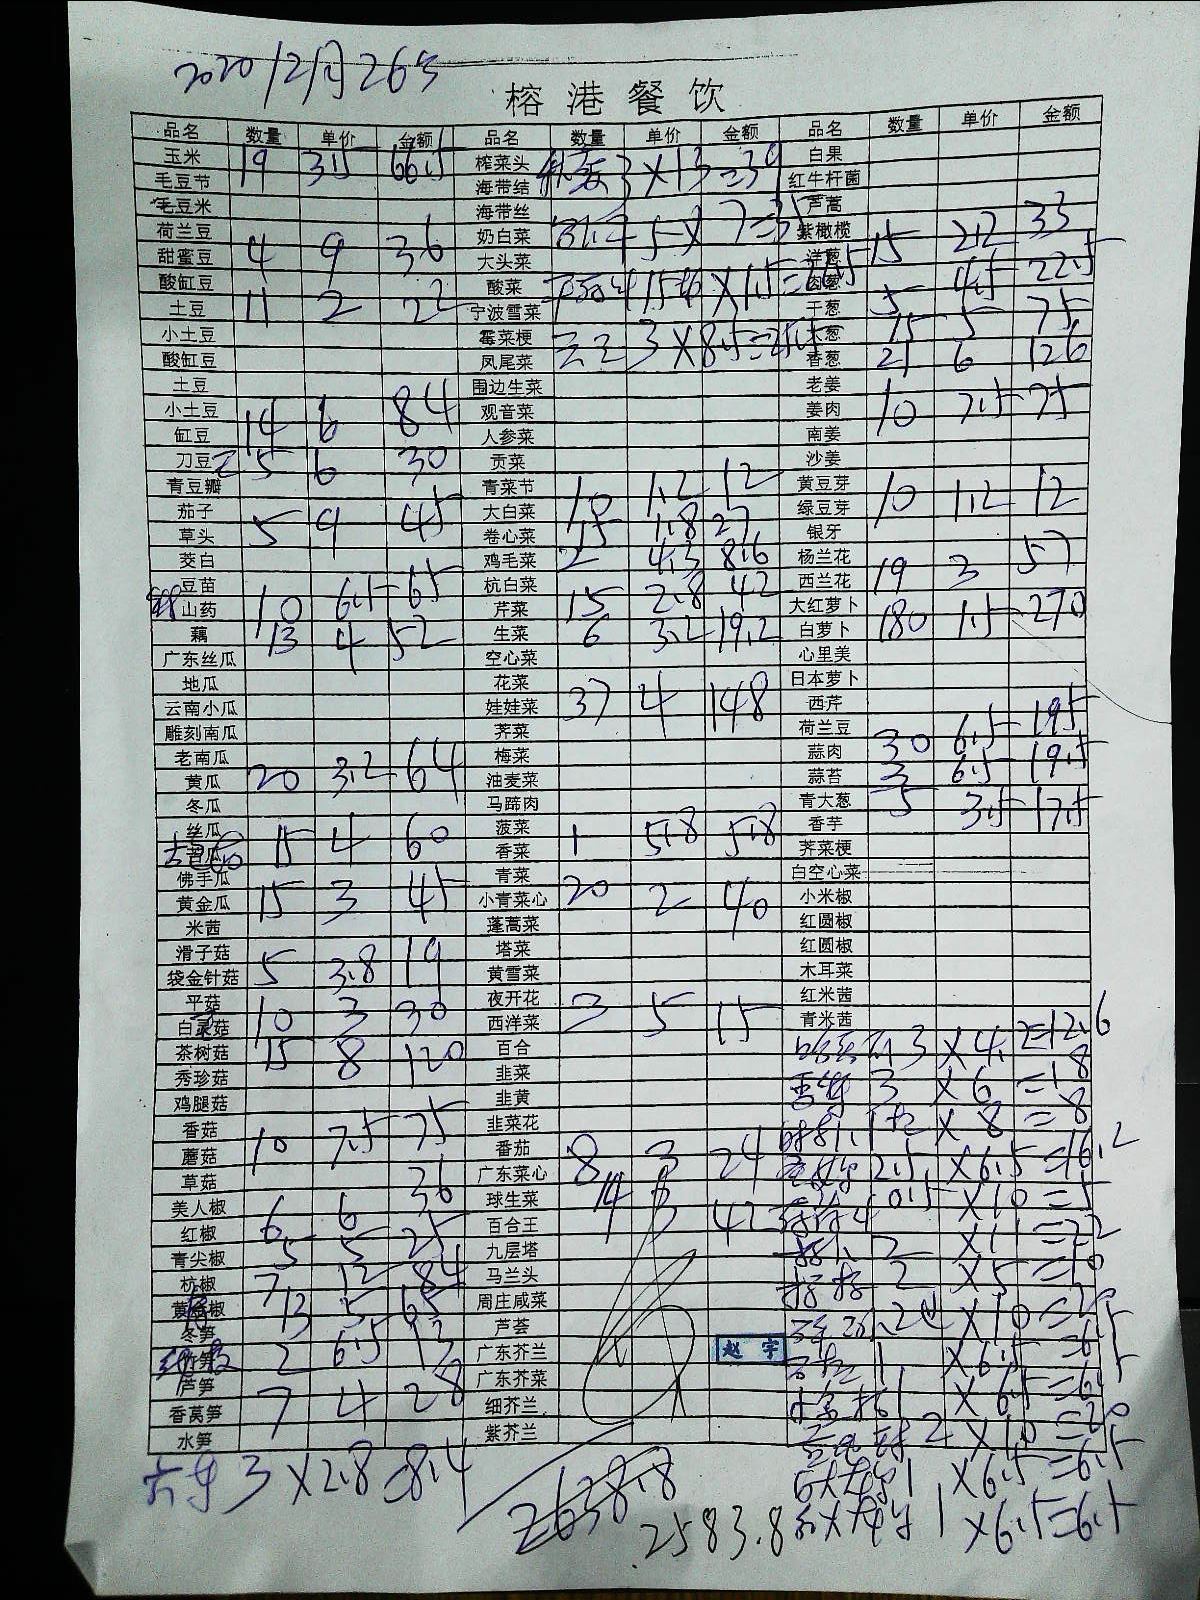 2020/12月26号
榕港餐饮
品名 数量 单价 金额 品名 数量 单价 金额 品名 数量 单价 金额
玉米 19 3.5 66.5 榨菜头 3×13=39 白果
毛豆节 海带结 红牛杆菌
毛豆米 海带丝 芦蒿
荷兰豆 4 9 36 奶白菜 5×7=35 紫橄榄 15 2.2 33
甜蜜豆 大头菜 洋葱 5 4.5 22.5
酸缸豆 11 2 22 酸菜 ×1.5= 肉葱
土豆 宁波雪菜 干葱 15 5 75
小土豆 霉菜梗 3×8.5=25.5 葱
酸缸豆 凤尾菜 香葱 21 6 126
土豆 围边生菜 老姜
小土豆 14 6 84 观音菜 姜肉 10 7.5 75
缸豆 人参菜 南姜
刀豆 5 6 30 贡菜 沙姜
青豆瓣 青菜节 10 1.2 12 黄豆芽 10 1.2 12
茄子 5 9 45 大白菜 15 1.8 27 绿豆芽
草头 卷心菜 银牙
茭白 鸡毛菜 2 4.3 8.6 杨兰花
豆苗 杭白菜 西兰花 19 3 57
山药 10 6.5 65 芹菜 15 2.8 42 大红萝卜
藕 13 4 52 生菜 6 3.2 19.2 白萝卜 180 1.5 270
广东丝瓜 空心菜 心里美
地瓜 花菜 日本萝卜
云南小瓜 娃娃菜 37 4 148 西芹
雕刻南瓜 荠菜 荷兰豆
老南瓜 梅菜 蒜肉 30 6.5 195
黄瓜 20 3.2 64 油麦菜 蒜苔 3 6.5 19.5
冬瓜 马蹄肉 青大葱 5 3.5 17.5
丝瓜 菠菜 香芋
瓜 15 4 60 香菜 1 5.8 5.8 荠菜梗
佛手瓜 青菜 白空心菜
黄金瓜 15 3 45 小青菜心 20 2 40 小米椒
米茜 蓬蒿菜 红圆椒
滑子菇 塔菜 红圆椒
袋金针菇 5 3.8 19 黄雪菜 木耳菜
平菇 夜开花 红米茜
白灵菇 10 3 30 西洋菜 3 5 15 青米茜
茶树菇 15 8 120 百合 3×4.2=12.6
秀珍菇 韭菜 3×6=18
鸡腿菇 韭黄 ×8=8
香菇 韭菜花
蘑菇 10 7.5 75 番茄 8 3 24 2.5×6.5=16.2
草菇 广东菜心 0.5×10=5
美人椒 6 6 36 球生菜 14 3 42 2×11=22
红椒 百合王 2×5=10
青尖椒 5 5 25 九层塔
杭椒 7 12 84 马兰头 2×10=20
椒 13 5 65 周庄咸菜 1×6.5=6.5
冬笋 芦荟
竹笋 2 6.5 13 广东芥兰 赵宇 1×6.5=6.5
芦笋 广东芥菜
香莴笋 7 4 28 细芥兰 2×10=20
水笋 紫芥兰
3×2.8=8.4 1×6.5=6.5
2638.8
2583.8 1×6.5=6.5